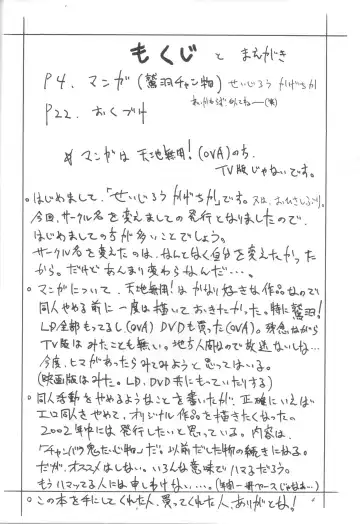 もくじ と まえがき
P4. マンガ (鷲羽チャン物) せいじろう かげちか
P22. おくづけ
マンガは 天地無用!(OVA)のち.
TV版じゃないです。
。はじめまして.「せいじろう かげちか」です。又は、おひさしぶり。
今回.サークル名を変えましての発行となりましたので.
はじめましての方が多いことでしょう。
サークル名を変えたのは、なんとなく自分を変えたかった
から。だけどあんまり変わらなんだ…。
。マンガについて.天地無用!はかなり好きな作品なので
同人やめる前に一度は描いておきたかった。特に鷲羽!
LD全部もってるし(OVA) DVDも買った(OVA)。残念ながら
TV版はみたことも無い。地方人間なので放送ないしな…
今度.ヒマがあったらみてみようと思ってはいる。
(映画版はみた。LD.DVD共にもっていたりする)
。同人活動をやめるようなことを書いたが.正確にいえば
エロ同人をやめて.オリジナル作品を描きたくなった。
2002年中には発行したいと思っている。内容は.
だが.オススメはしない。いろんな意味でハマるだろう。
もうハマッてる人には申しわけない…。
。この本を手にしてくれた人.買ってくれた人.ありがとな!